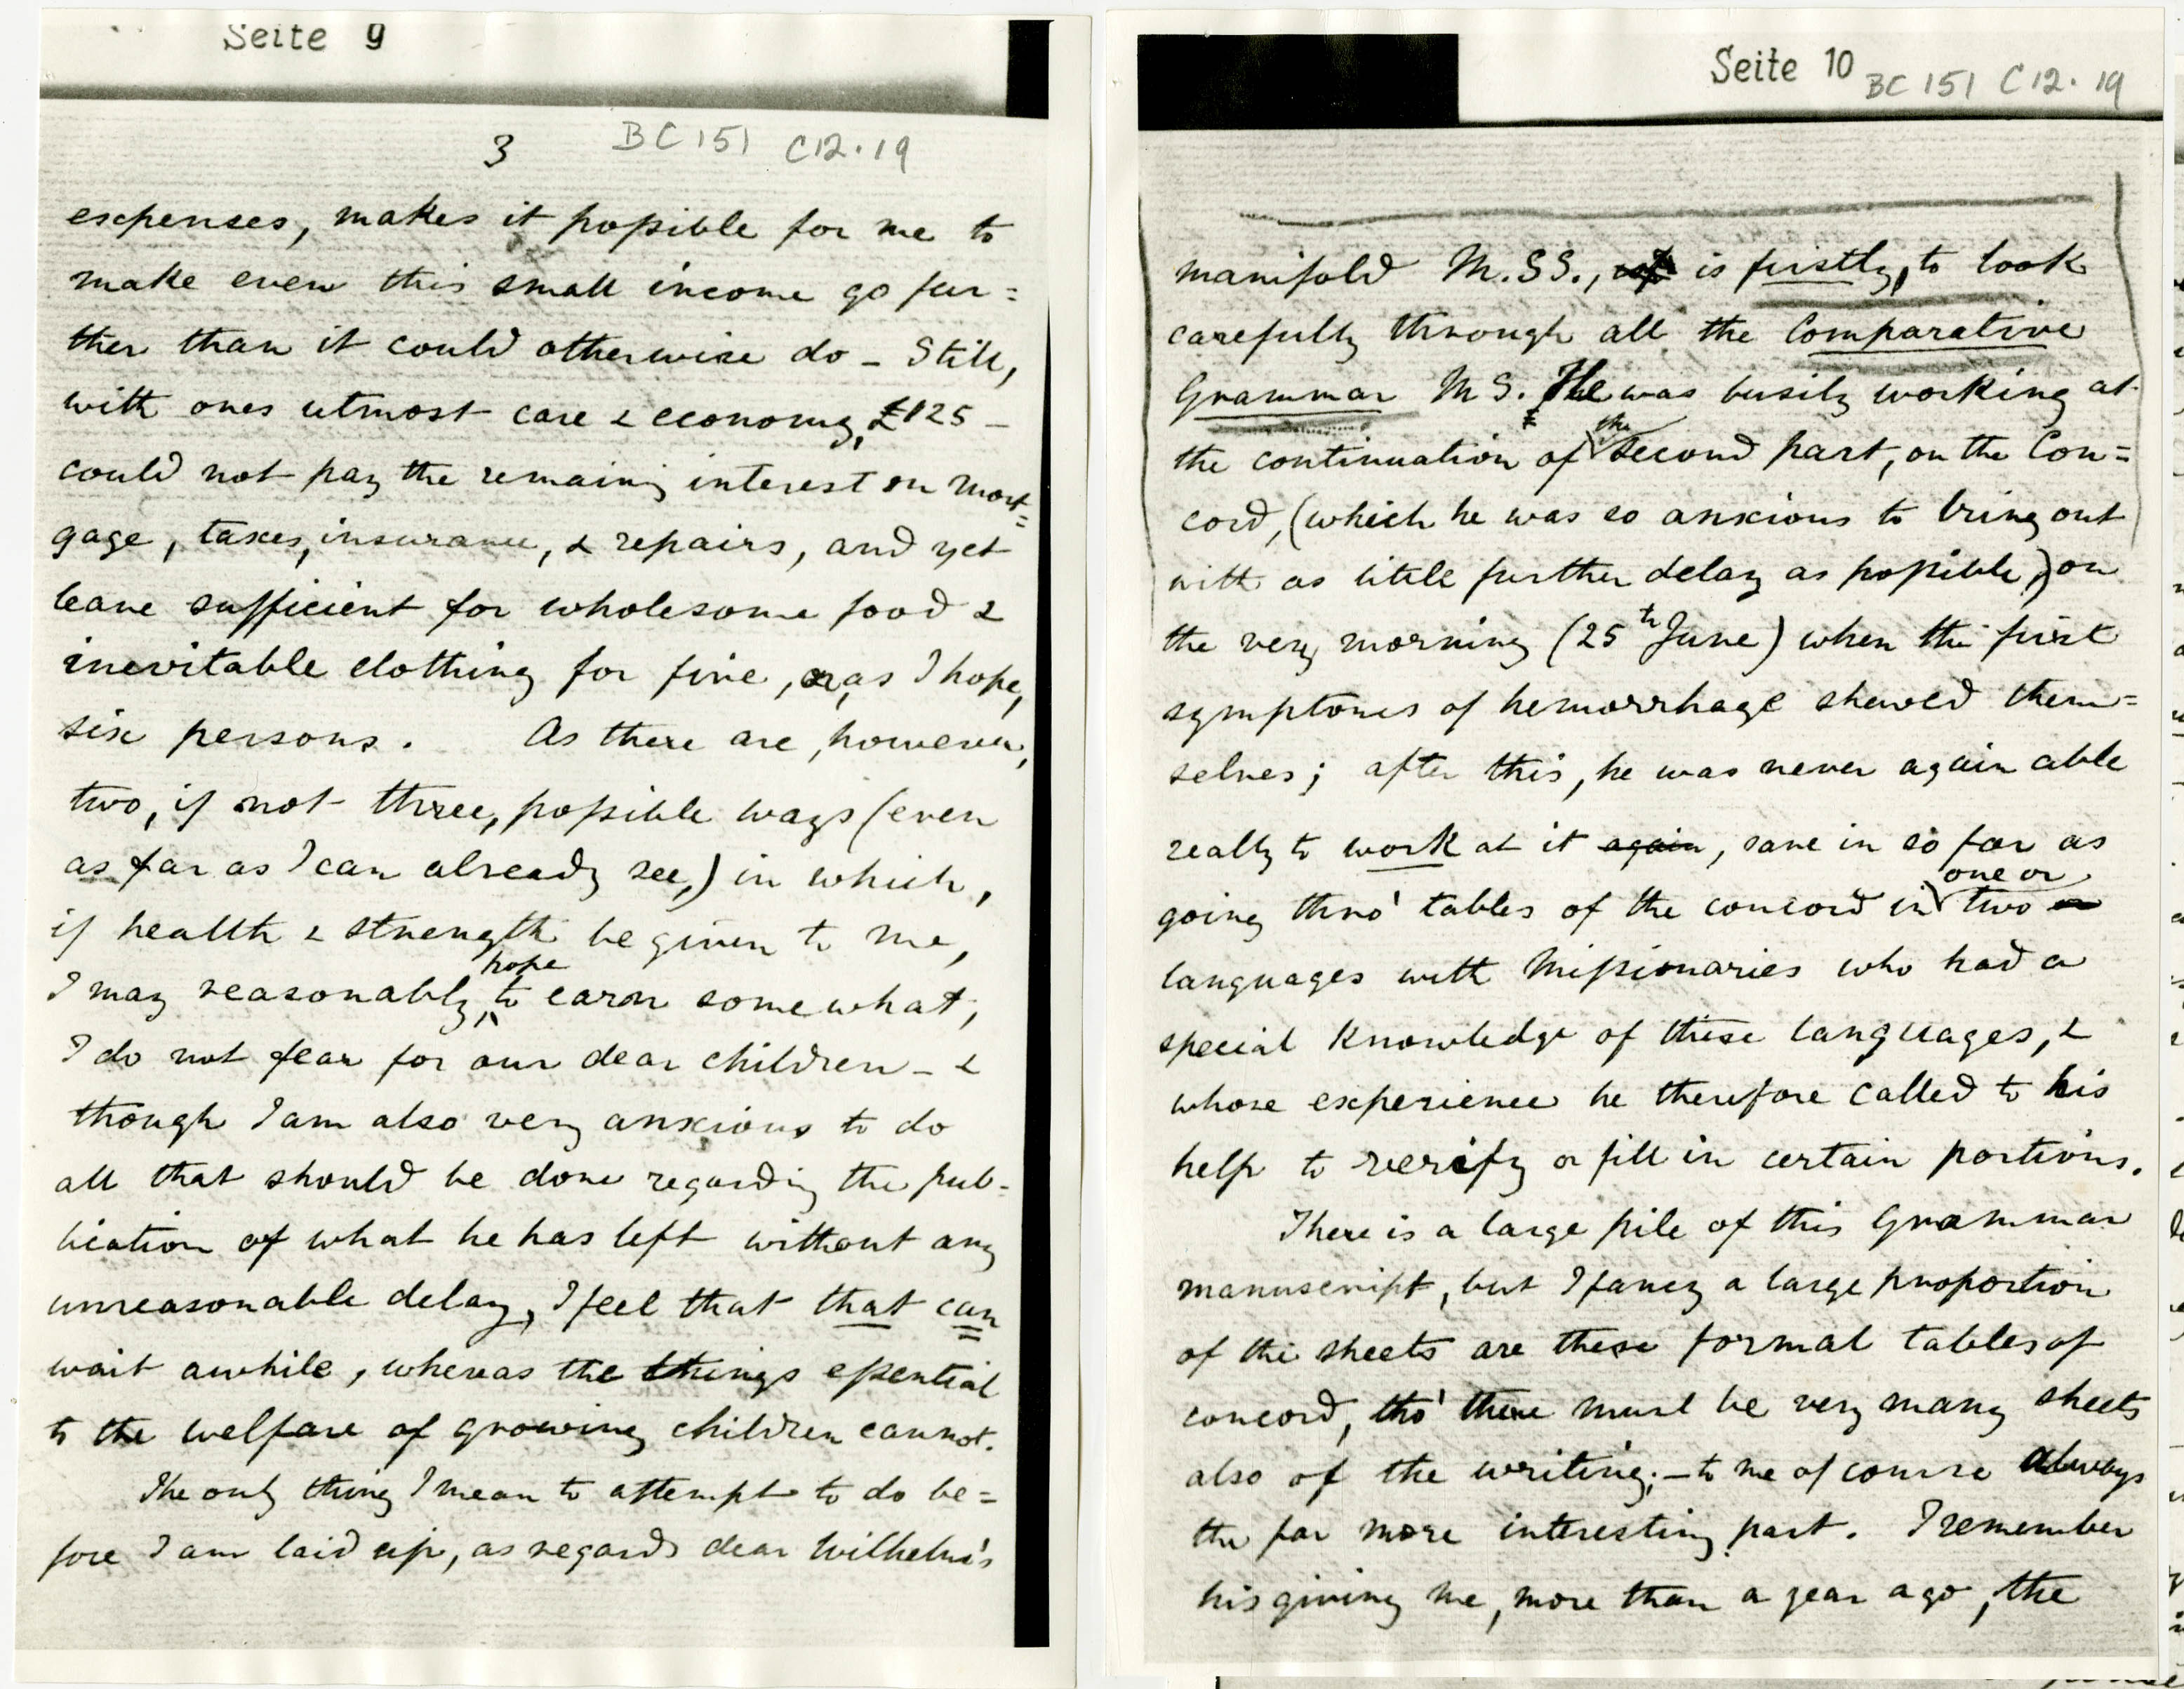 Seite 9
3 BC 151 C12.19
expenses, makes it possible for me to
make even this small income go fur=
ther than it could otherwise do - Still,
with ones utmost care & economy, £125 -
could not pay the remaining interest on mort=
gage, taxes, insurance, & repairs, and yet
leave sufficient for wholesome food &
inevitable clothing for five, or, as I hope,
six persons. As there are, however,
two, if not three, possible ways (even
as far as I can already see,) in which,
if health & strength be given to me,
hope
I may reasonably to earn somewhat,
I do not fear for our dear children - &
though I am also very anxious to do
all that should be done regarding the pub-
lication of what he has left without any
unreasonable delay, I feel that that can
wait awhile, whereas the things essential
to the welfare of growing children cannot.
The only thing I mean to attempt to do be=
fore I am laid up, as regards dear Wilhelm's
Seite 10 BC 151 C12.19
manifold M.SS., is firstly, to look
carefully through all the Comparative
Grammar MS. He was busily working at
the
the continuation of second part, on the Con=
cord, (which he was so anxious to bring out
with as little further delay as possible,) on
the very morning (25th June) when the first
symptoms of hemorrhage shewed them=
selves; after this, he was never again able
really to work at it again, save in so far as
one or
going thro' tables of the concord in two
languages with Missionaries who had a
special knowledge of these languages, &
whose experience he therefore called to his
help to verify or fill in certain portions.
There is a large pile of this Grammar
manuscript, but I fancy a large proportion
of the sheets are these formal tables of
concord, tho' there must be very many sheets
also of the writing; - to me of course always
the far more interesting part. I remember
his giving me, more than a year ago, the